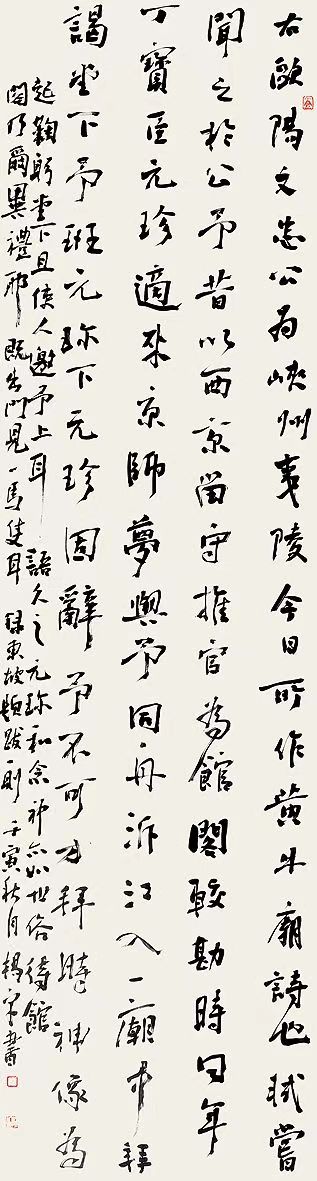 右歐陽文忠公為峽州夷陵令日所作黃牛廟詩也軾嘗
聞之於公予昔以西京留守推官為館閣較勘時同年
丁寶臣元珍適來京師夢與予同舟泝江入一廟中拜
謁堂下予班元珍下元珍固辭予不可方拜時神像為
起鞠躬堂下且使人邀予上耳語久之元珍私念神亦如世俗待館
閣乃爾異禮耶既出門見一馬隻耳 錄東坡題跋一則 壬寅秋月 楊 書